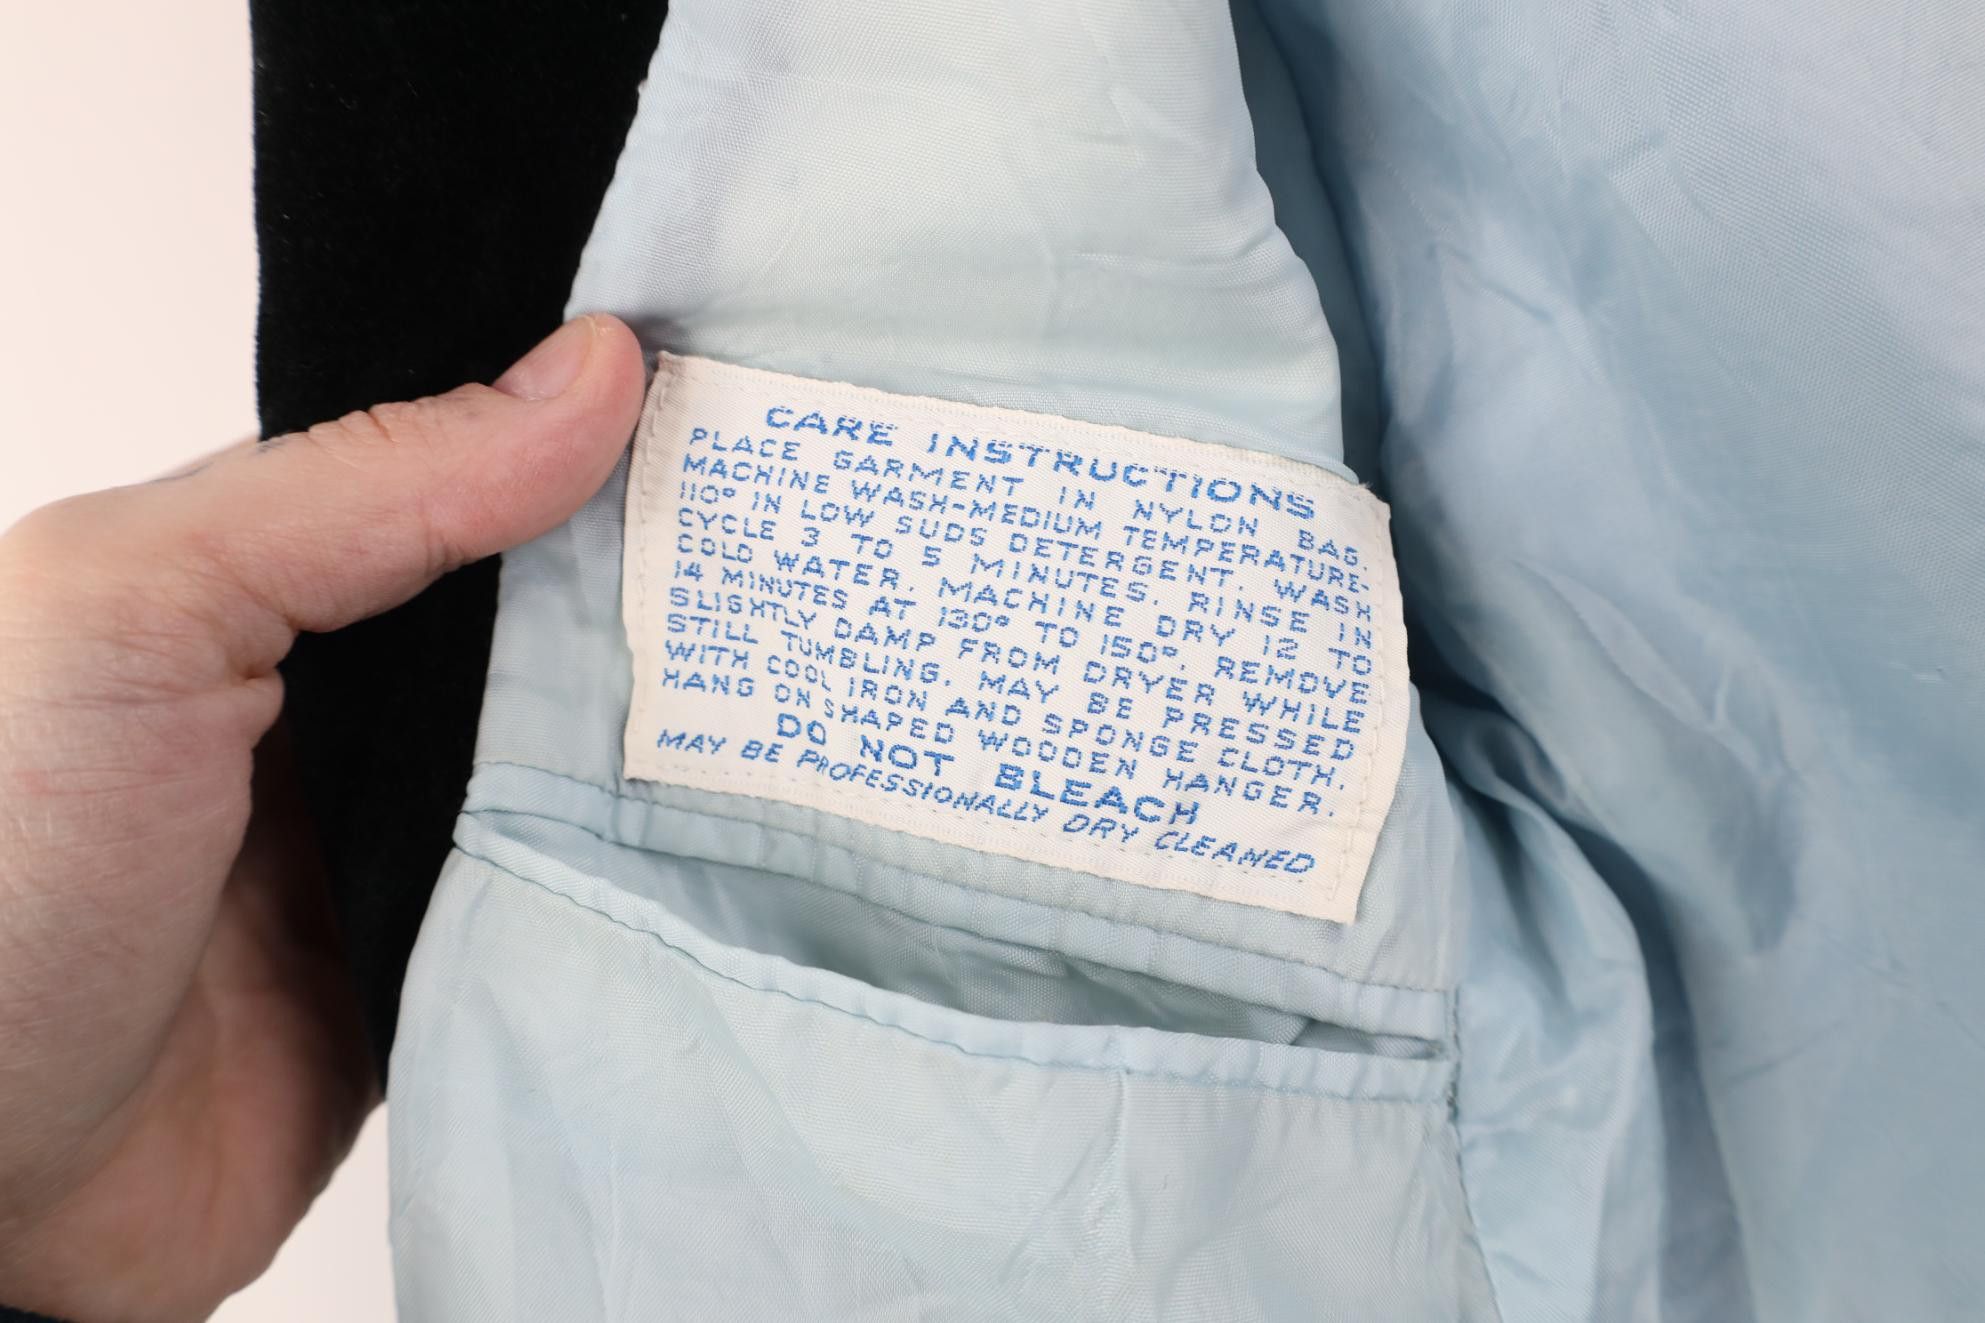 CARE INSTRUCTIONS
PLACE GARMENT IN NYLON BAG.
MACHINE WASH-MEDIUM TEMPERATURE-
110° IN LOW SUDS DETERGENT. WASH
CYCLE 3 TO 5 MINUTES. RINSE IN
COLD WATER. MACHINE DRY 12 TO
14 MINUTES AT 130° TO 150°. REMOVE
SLIGHTLY DAMP FROM DRYER WHILE
STILL TUMBLING. MAY BE PRESSED
WITH COOL IRON AND SPONGE CLOTH.
HANG ON SHAPED WOODEN HANGER.
DO NOT BLEACH
MAY BE PROFESSIONALLY DRY CLEANED